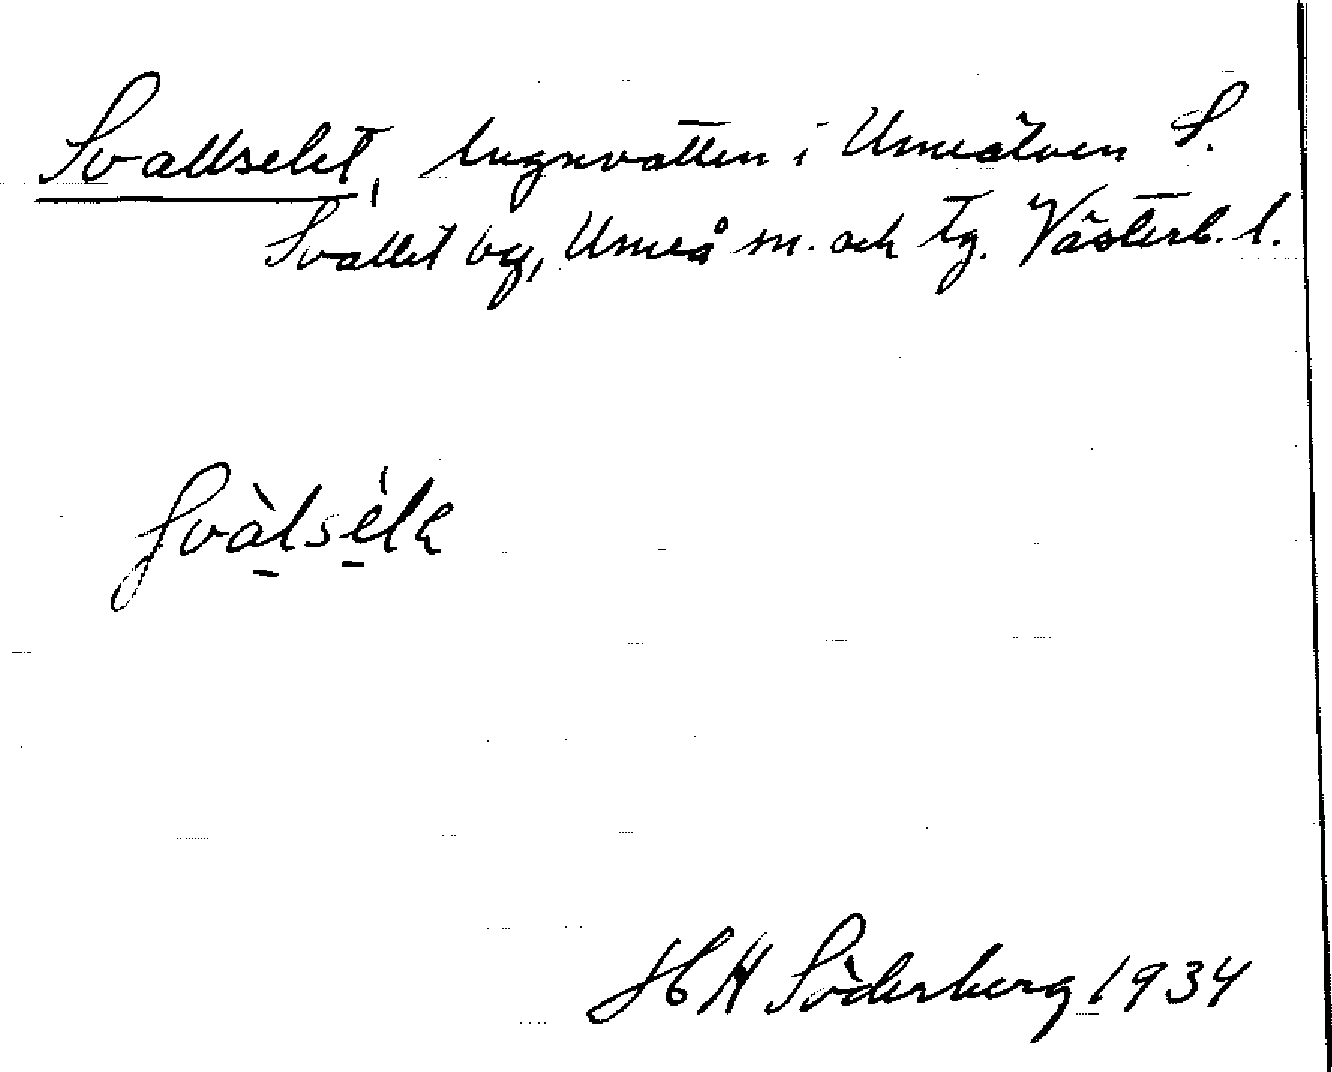 Svallselet, lugnvatten i Umeälven S.
Svallet by, Umeå sn. och tg. Västerb. l.
Svàlsélе
H H Söderberg 1934